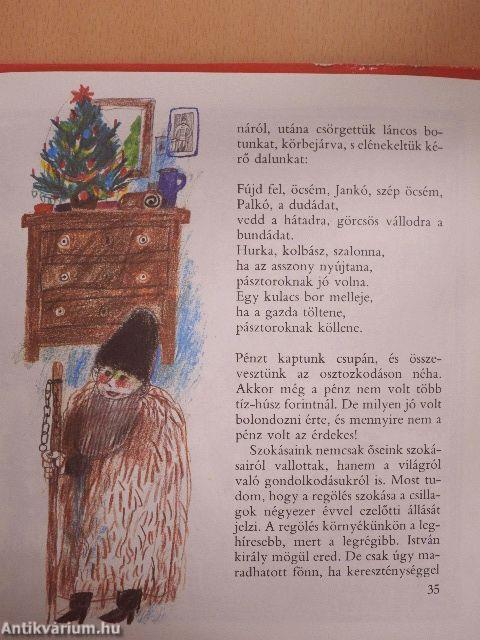 náról, utána csörgettük láncos bo-
tunkat, körbejárva, s elénekeltük ké-
rő dalunkat:
Fújd fel, öcsém, Jankó, szép öcsém,
Palkó, a dudádat,
vedd a hátadra, görcsös válladra a
bundádat.
Hurka, kolbász, szalonna,
ha az asszony nyújtana,
pásztoroknak jó volna.
Egy kulacs bor melleje,
ha a gazda töltene,
pásztoroknak köllene.
Pénzt kaptunk csupán, és össze-
vesztünk az osztozkodáson néha.
Akkor még a pénz nem volt több
tíz-húsz forintnál. De milyen jó volt
bolondozni érte, és mennyire nem a
pénz volt az érdekes!
Szokásaink nemcsak őseink szoká-
sairól vallottak, hanem a világról
való gondolkodásukról is. Most tu-
dom, hogy a regölés szokása a csilla-
gok négyezer évvel ezelőtti állását
jelzi. A regölés környékünkön a leg-
híresebb, mert a legrégibb. István
király mögül ered. De csak úgy ma-
radhatott fönn, ha kereszténységgel
35
Antikvárium.hu